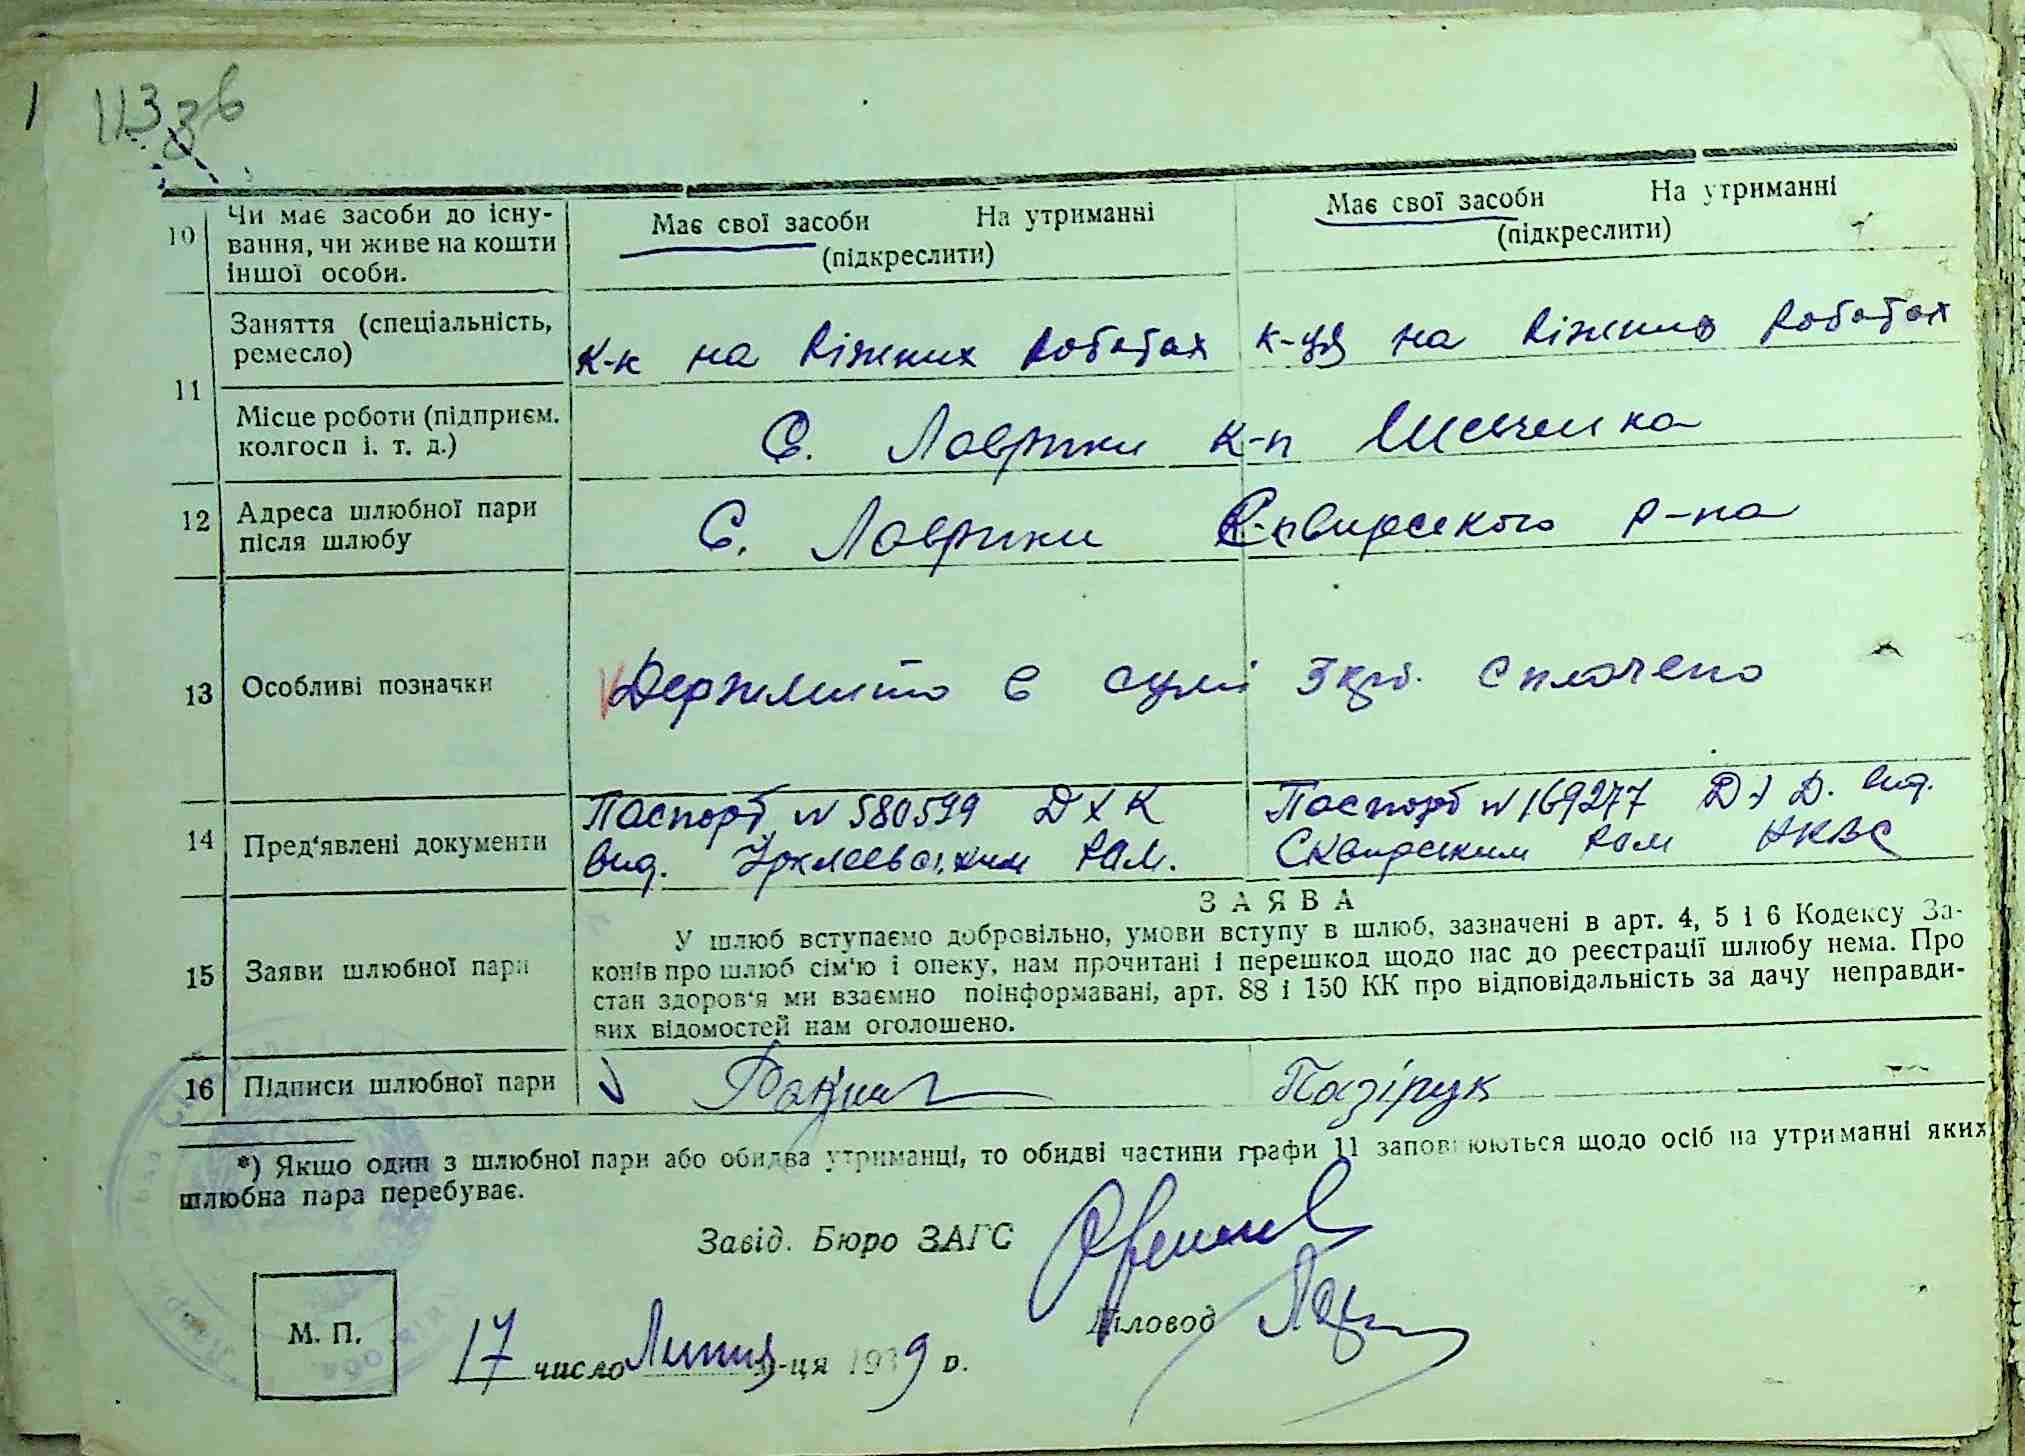 113 зв
10 Чи має засоби до існу-
вання, чи живе на кошти
іншої особи.
Має свої засоби На утриманні
(підкреслити)
Має свої засоби На утриманні
(підкреслити)
11
Заняття (спеціальність,
ремесло)
к-к на ріжних роботах
к-ця на ріжних роботах
Місце роботи (підприєм.
колгосп і. т. д.)
С. Лаврики к-п Шевченка
12 Адреса шлюбної пари
після шлюбу
С. Лаврики Сквирського р-на
13 Особливі позначки
Держмито в сумі 3 крб. сплачено
14 Пред'явлені документи
Паспорт N 580599 ДХК
вид. РОМ.
Паспорт N 169277 вид.
Сквирським РОМ НКВС
15 Заяви шлюбної пари
ЗАЯВА
У шлюб вступаємо добровільно, умови вступу в шлюб, зазначені в арт. 4, 5 і 6 Кодексу За-
конів про шлюб сім'ю і опеку, нам прочитані і перешкод щодо нас до реєстрації шлюбу нема. Про
стан здоров'я ми взаємно поінформавані, арт. 88 і 150 КК про відповідальність за дачу неправди-
вих відомостей нам оголошено.
16 Підписи шлюбної пари
Пазірук
*) Якщо один з шлюбної пари або обидва утриманці, то обидві частини графи 11 заповнюються щодо осіб на утриманні яких
шлюбна пара перебуває.
Завід. Бюро ЗАГС
Діловод
М. П.
17 число Липня м-ця 1939 р.